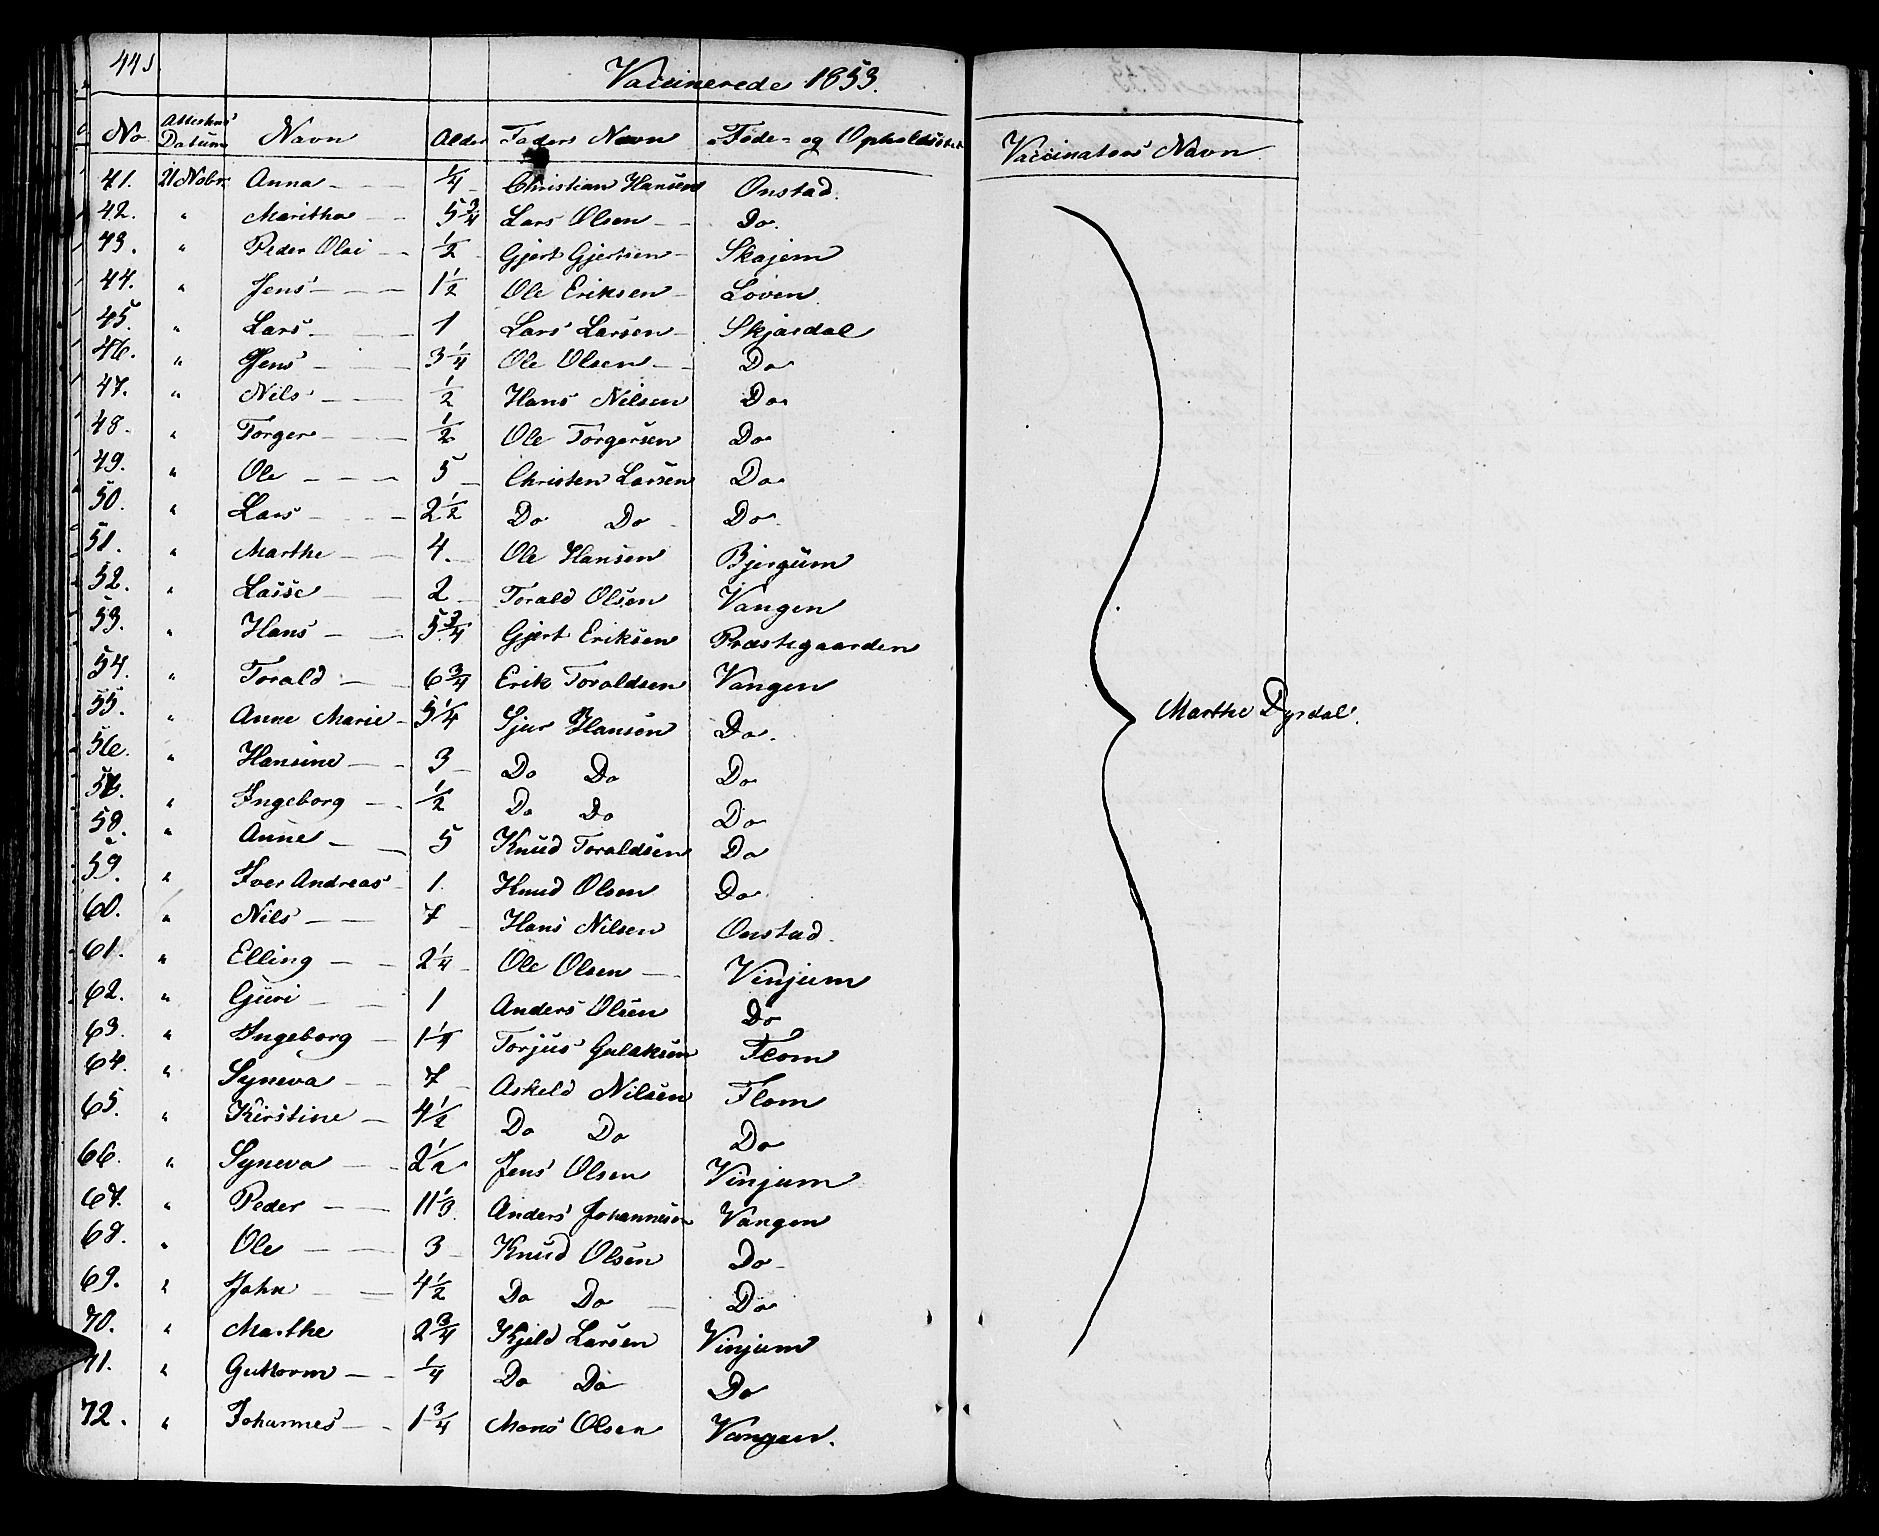 445
Vaccinerede 1853.
No Attestens Datum Navn Alder Faders Navn Føde- og Opholdssted Vaccinators Navn
41. 21 Nobr. Anna - - 1/4 - Christian Hansen Onstad.
42. " Maritha - - 5 3/4 Lars Olsen - - Do.
43. " Peder Olai - - 1/2 - Gjert Gjertsen - Skajem
44. " Jens - - - 1 1/2 Ole Eriksen - Loven.
45. " Lars - - - 1 Lars Larsen - Skjærdal
46. " Jens - - 3 1/4 Ole Olsen - - Do
47. " Nils - - - 1/2 Hans Nilsen Do
48. " Torger - - - 1/2 Ole Torgersen Do
49. " Ole - - - 5 - Christen Larsen Do
50. " Lars - - - 2 1/2 Do Do - Do.
51. " Marthe - - 4. - Ole Hansen Bjergum
52. " Lasse - - 2 - Torald Olsen Vangen
53. " Hans - - 5 3/4 Gjert Eriksen Præstegaarden
54. " Torald - - 6 3/4 Erik Toraldsen Vangen
55. " Anne Marie - 5 1/4 Sjur Hansen Do. Marthe Dyrdal.
56. " Hansine - - 3 - Do Do Do
57. " Ingeborg - - 1/2 Do Do Do
58. " Anne - - 5 Knud Toraldsen Do
59. " Iver Andreas - 1. Knud Olsen Do.
60. " Nils - - 7 - Hans Nilsen Onstad.
61. " Elling - - 2 1/4 - Ole Olsen - - Vinjum
62. " Guri - - 1 Anders Olsen Do
63. " Ingeborg - 1 1/4 Torjus Gulaksen Flom
64. " Syneva - - 7 - Askeld Nilsen Flom
65. " Kirstine - 4 1/2 Do Do Do
66. " Syneva - - 2 1/2 Jens Olsen Vinjum
67. " Peder - - 11 1/3. Anders Johannesen Vangen
68. " Ole - - 3 - Knud Olsen Do -
69. " John - - 4 1/2 Do Do - Do
70. " Marthe 2 3/4 Kjeld Larsen Vinjum
71. " Guttorm - - 1/4 Do Do Do
72. " Johannes - - 1 3/4 Mons Olsen Vangen.